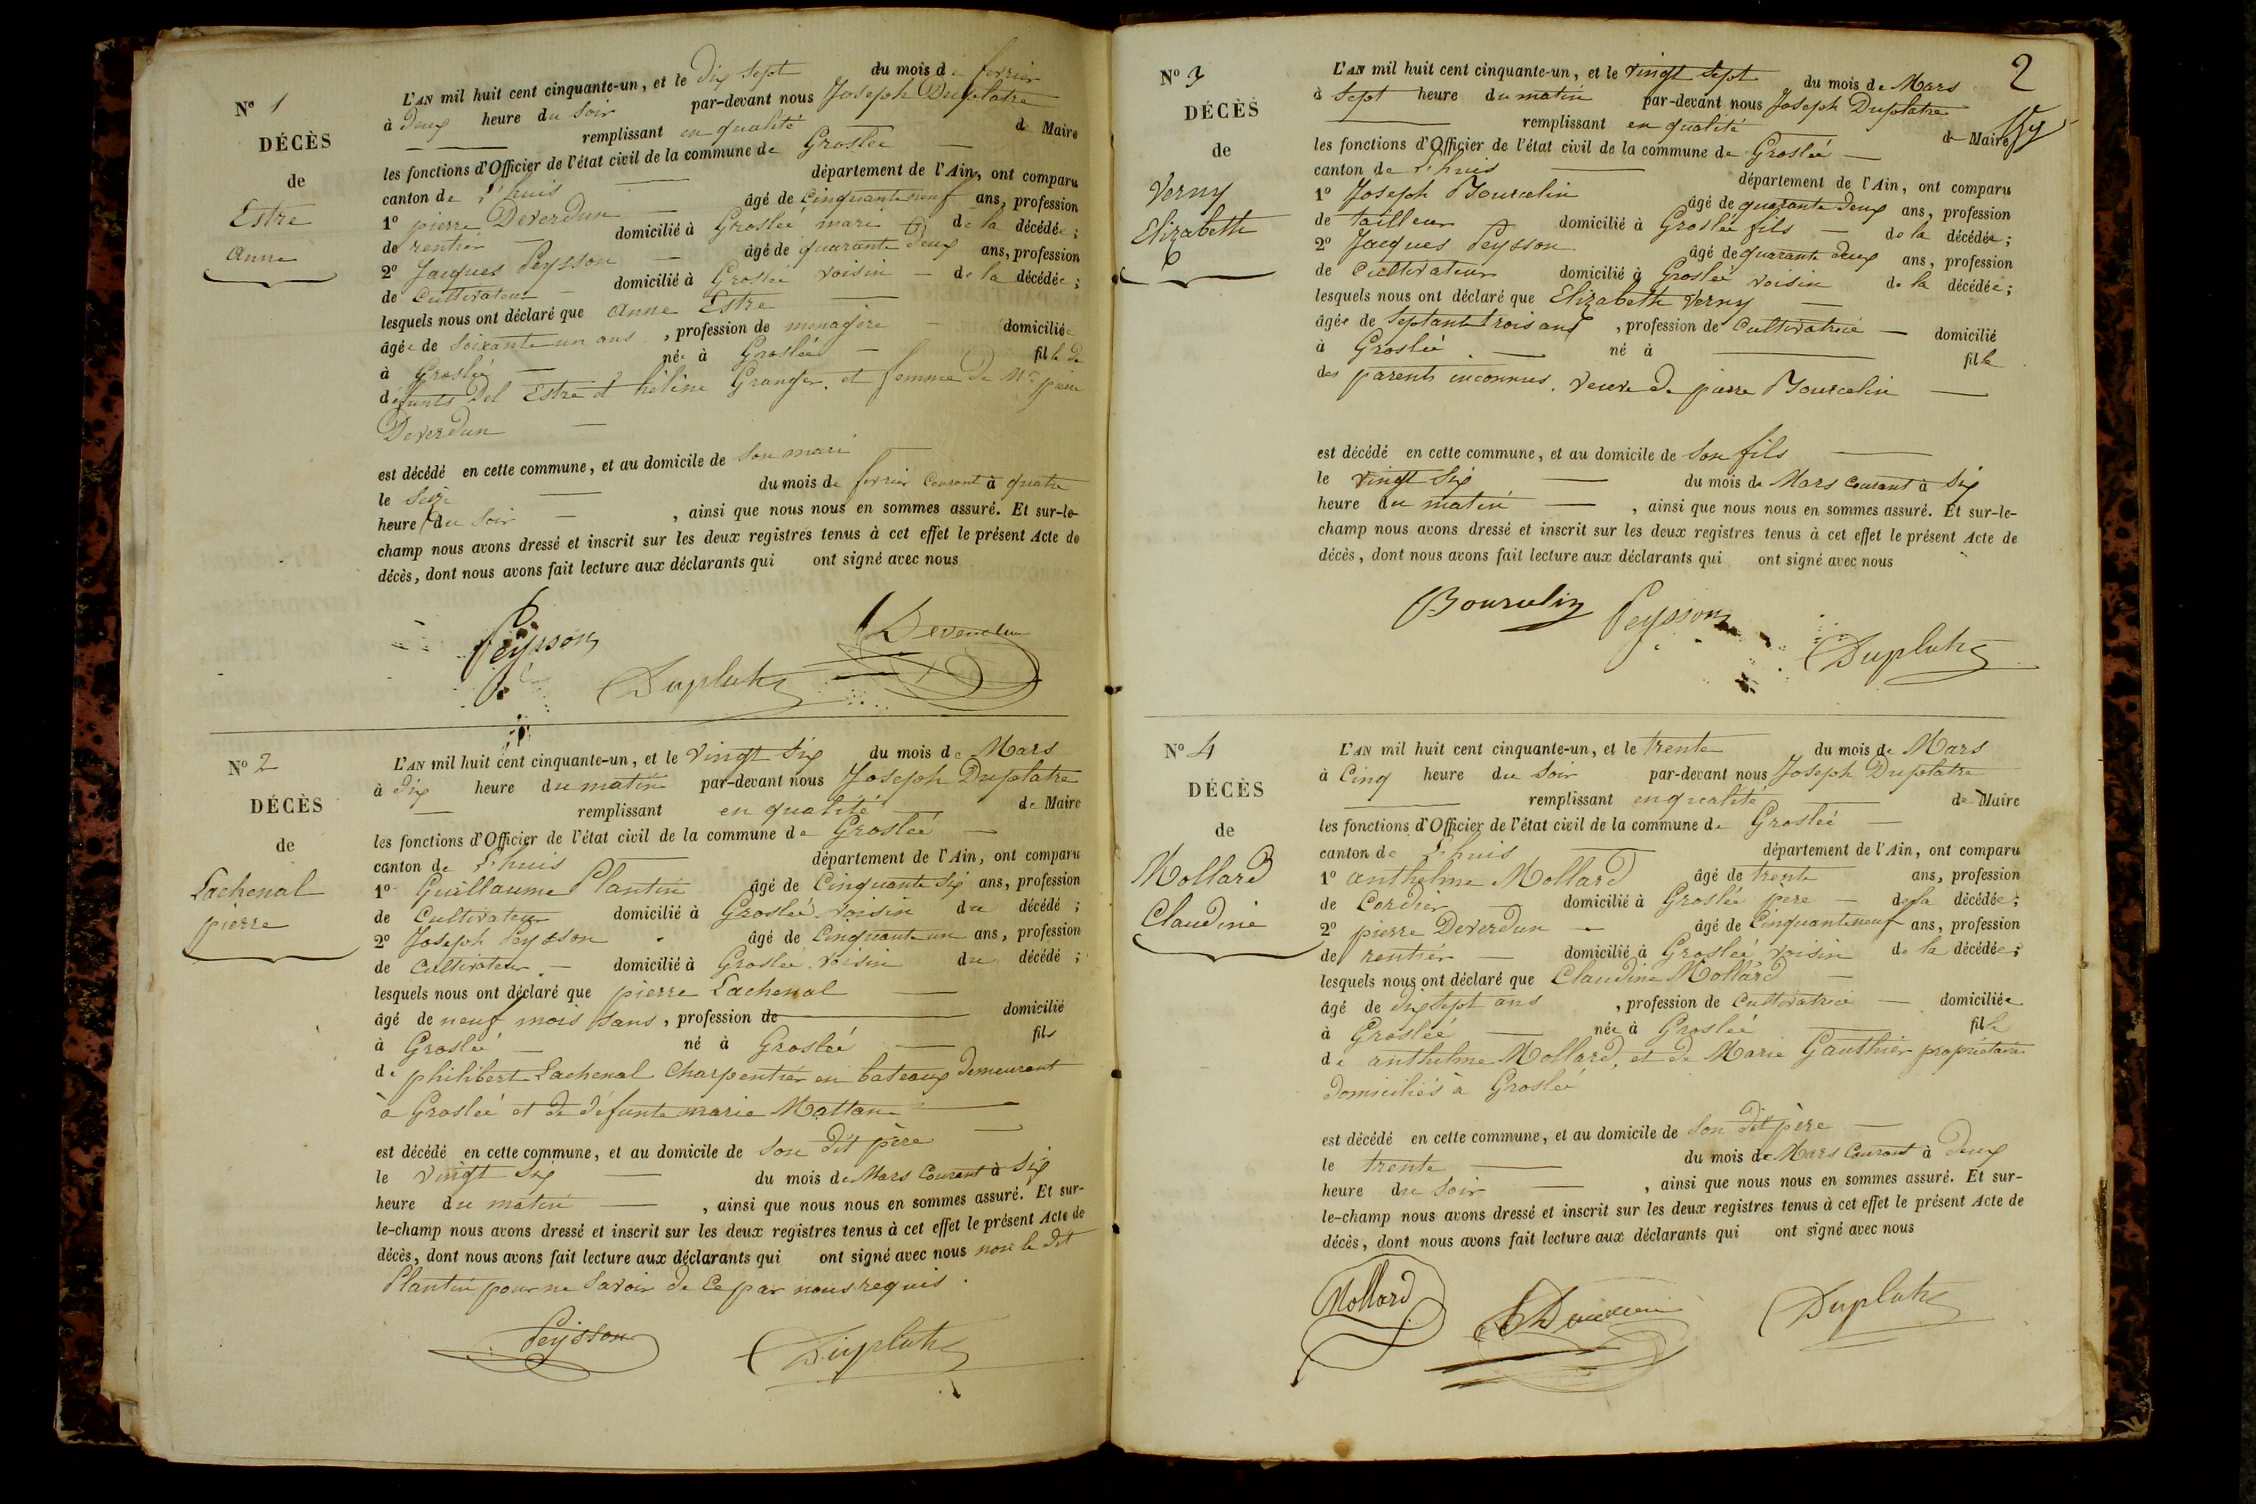 N° 1
DÉCÈS
de
Estre
anne
L'AN mil huit cent cinquante-un, et le dix sept du mois de fevrier
à deux heure du soir par-devant nous Joseph Duplatre
remplissant en qualité de Maire
les fonctions d'Officier de l'état civil de la commune de Groslée
canton de L'huis département de l'Ain, ont comparu
1° pierre Deverdun âgé de cinquante neuf ans, profession
de rentier domicilié à Groslée mari de la décédée ;
2° Jacques Peysson âgé de quarante deux ans, profession
de cultivateur domicilié à Groslée voisin de la décédée ;
lesquels nous ont déclaré que anne Estre
âgée de soixante un ans, profession de menagère domiciliée
à Groslée née à Groslée fille de
défunts Estre et hélène Granger, et femme de pierre
Deverdun
est décédé en cette commune, et au domicile de son mari
le seize du mois de fevrier courant à quatre
heure du soir, ainsi que nous nous en sommes assuré. Et sur-le-
champ nous avons dressé et inscrit sur les deux registres tenus à cet effet le présent Acte de
décès, dont nous avons fait lecture aux déclarants qui ont signé avec nous
Peysson
Duplatre
Deverdun
N° 2
DÉCÈS
de
Lachenal
pierre
L'AN mil huit cent cinquante-un, et le vingt six du mois de Mars
à dix heure du matin par-devant nous Joseph Duplatre
remplissant en qualité de Maire
les fonctions d'Officier de l'état civil de la commune de Groslée
canton de L'huis département de l'Ain, ont comparu
1° Guillaume Plantin âgé de Cinquante six ans, profession
de Cultivateur domicilié à Groslée voisin du décédé ;
2° Joseph Peysson âgé de Cinquante un ans, profession
de Cultivateur domicilié à Groslée voisin du décédé ;
lesquels nous ont déclaré que pierre Lachenal
âgé de neuf mois sans, profession de domicilié
à Groslée né à Groslée fils
de philibert Lachenal Charpentier en bateaux demeurant
à Groslée et de défunte marie
est décédé en cette commune, et au domicile de son dit père
le vingt six du mois de Mars Courant à six
heure du matin, ainsi que nous nous en sommes assuré. Et sur-
le-champ nous avons dressé et inscrit sur les deux registres tenus à cet effet le présent Acte de
décès, dont nous avons fait lecture aux déclarants qui ont signé avec nous non le dit
Plantin pour ne savoir de Ce par nous requis.
Peysson
Duplatre
2
N° 3
DÉCÈS
de
Verny
Elizabeth
L'AN mil huit cent cinquante-un, et le vingt sept du mois de Mars
à sept heure du matin par-devant nous Joseph Duplatre
remplissant en qualité de Maire
les fonctions d'Officier de l'état civil de la commune de Groslée
canton de L'huis département de l'Ain, ont comparu
1° Joseph Bourcelin âgé de quarante deux ans, profession
de tailleur domicilié à Groslée fils de la décédée ;
2° Jacques Peysson âgé de quarante deux ans, profession
de cultivateur domicilié à Groslée voisin de la décédée ;
lesquels nous ont déclaré que Elizabeth Verny
âgée de septante trois ans, profession de Cultivatrice domicilié
à Groslée né à fille
des parents inconnus. veuve de pierre Bourcelin
est décédé en cette commune, et au domicile de son fils
le vingt six du mois de Mars courant à six
heure du matin, ainsi que nous nous en sommes assuré. Et sur-le-
champ nous avons dressé et inscrit sur les deux registres tenus à cet effet le présent Acte de
décès, dont nous avons fait lecture aux déclarants qui ont signé avec nous
Bourcelin
Peysson
Duplatre
N° 4
DÉCÈS
de
Mollard
Claudine
L'AN mil huit cent cinquante-un, et le trente du mois de Mars
à Cinq heure du soir par-devant nous Joseph Duplatre
remplissant en qualité de Maire
les fonctions d'Officier de l'état civil de la commune de Groslée
canton de L'huis département de l'Ain, ont comparu
1° anthelme Mollard âgé de trente ans, profession
de Cordier domicilié à Groslée père de la décédée ;
2° pierre Deverdun âgé de Cinquante neuf ans, profession
de rentier domicilié à Groslée voisin de la décédée ;
lesquels nous ont déclaré que Claudine Mollard
âgé de dix sept ans, profession de Cultivatrice domiciliée
à Groslée née à Groslée fille
de anthelme Mollard, et de Marie Gauthier propriétaire
domiciliés à Groslée
est décédé en cette commune, et au domicile de son dit père
le trente du mois de Mars Courant à deux
heure du soir, ainsi que nous nous en sommes assuré. Et sur-
le-champ nous avons dressé et inscrit sur les deux registres tenus à cet effet le présent Acte de
décès, dont nous avons fait lecture aux déclarants qui ont signé avec nous
Mollard
Duplatre